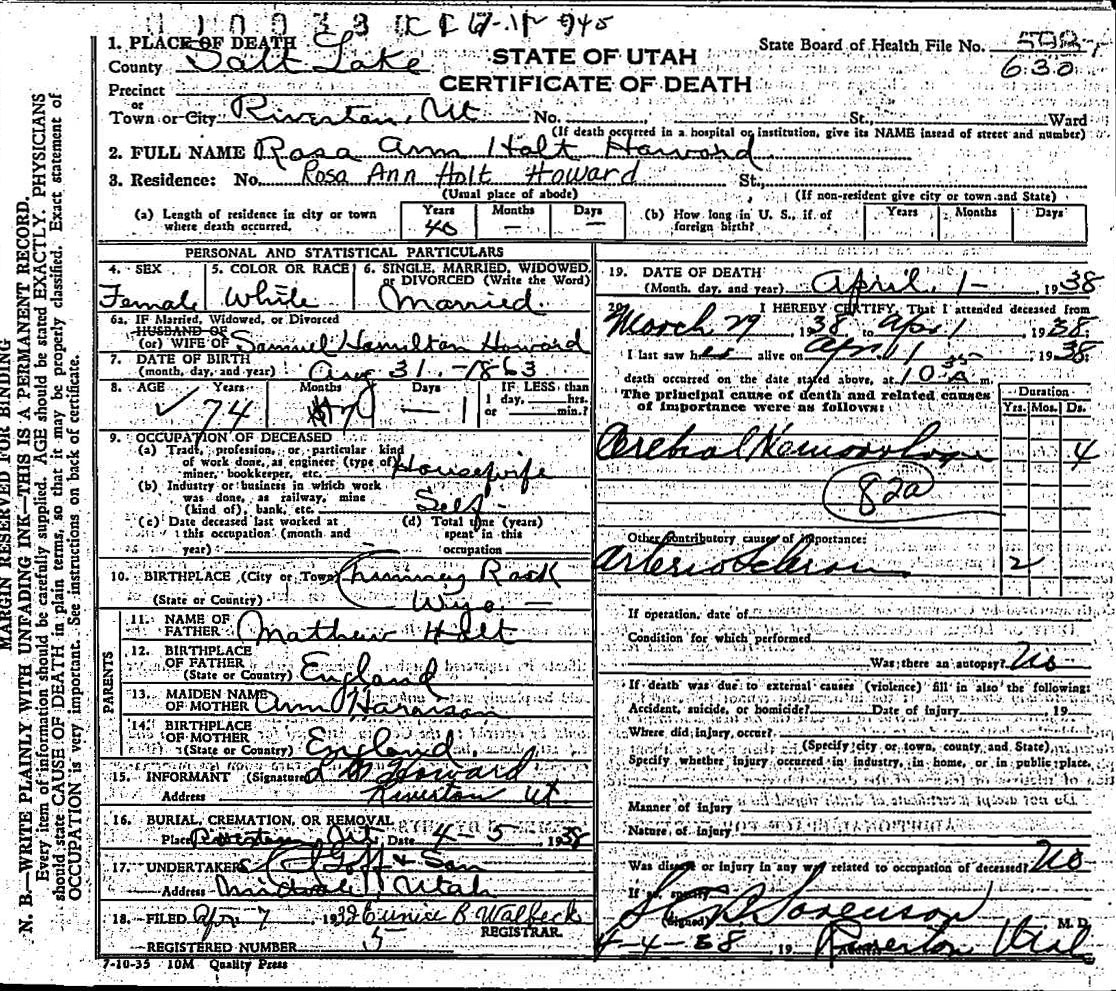 1. PLACE OF DEATH
County Salt Lake
STATE OF UTAH
CERTIFICATE OF DEATH
State Board of Health File No.
630
Precinct
or
Town or City Riverton, Ut No. St., Ward
(If death occurred in a hospital or institution, give its NAME instead of street and number)
2. FULL NAME Rosa Ann Holt Howard
3. Residence: No. Rosa Ann Holt Howard St.,
(Usual place of abode) (If non-resident give city or town and State)
(a) Length of residence in city or town where death occurred. Years 40 Months — Days —
(b) How long in U. S., if of foreign birth? Years Months Days
PERSONAL AND STATISTICAL PARTICULARS
4. SEX Female
5. COLOR OR RACE White
6. SINGLE, MARRIED, WIDOWED, or DIVORCED (Write the Word) Married.
6a. IF Married, Widowed, or Divorced
HUSBAND OF
(or) WIFE OF Samuel Hamilton Howard
7. DATE OF BIRTH
(month, day, and year) Aug 31, -1863
8. AGE Years 74 Months 7 Days — 1
IF LESS than 1 day, hrs. or min.?
9. OCCUPATION OF DECEASED
(a) Trade, profession, or particular kind
of work done, as engineer (type of)
miner, bookkeeper, etc. Housewife
(b) Industry or business in which work
was done, as railway, mine
(kind of), bank, etc. Self
(c) Date deceased last worked at
this occupation (month and
year)
(d) Total time (years)
spent in this
occupation
10. BIRTHPLACE (City or Town) Chimney Rock
(State or Country) Wyo —
PARENTS
11. NAME OF
FATHER Mathew Holt
12. BIRTHPLACE
OF FATHER
(State or Country) England
13. MAIDEN NAME
OF MOTHER Ann Harrison
14. BIRTHPLACE
OF MOTHER
(State or Country) England
15. INFORMANT (Signature) Howard
Address Riverton Ut.
16. BURIAL, CREMATION, OR REMOVAL
Place Riverton, Ut. Date 4-5, 1938
17. UNDERTAKER Goff & Son
Address Midvale Utah
18. FILED Apr 7 19 Eunice B. Walbeck
REGISTRAR
REGISTERED NUMBER 5
7-10-35 10M Quality Press
19. DATE OF DEATH
(Month, day, and year) April 1- 1938
20. I HEREBY CERTIFY, That I attended deceased from
March 29 1938 to Apr 1 1938.
I last saw her alive on Apr 1 1938;
death occurred on the date stated above, at 10 35 a m.
The principal cause of death and related causes
of importance were as follows:
Duration
Yrs. Mos. Ds.
Cerebral Hemorrhage 4
82a
Other contributory causes of importance:
Arterio Sclerosis 2
If operation, date of
Condition for which performed
Was there an autopsy? No
If death was due to external causes (violence) fill in also the following:
Accident, suicide, or homicide? Date of injury 19
Where did injury occur?
(Specify city or town, county and State)
Specify whether injury occurred in industry, in home, or in public place.
Manner of injury
Nature of injury
Was disease or injury in any way related to occupation of deceased? No
If so, specify
(Signed) Sorenson M. D.
4-4-38 19 Address Riverton Utah
MARGIN RESERVED FOR BINDING
N. B.—WRITE PLAINLY WITH UNFADING INK—THIS IS A PERMANENT RECORD.
Every item of information should be carefully supplied. AGE should be stated EXACTLY. PHYSICIANS
should state CAUSE OF DEATH in plain terms, so that it may be properly classified. Exact statement of
OCCUPATION is very important. See instructions on back of certificate.